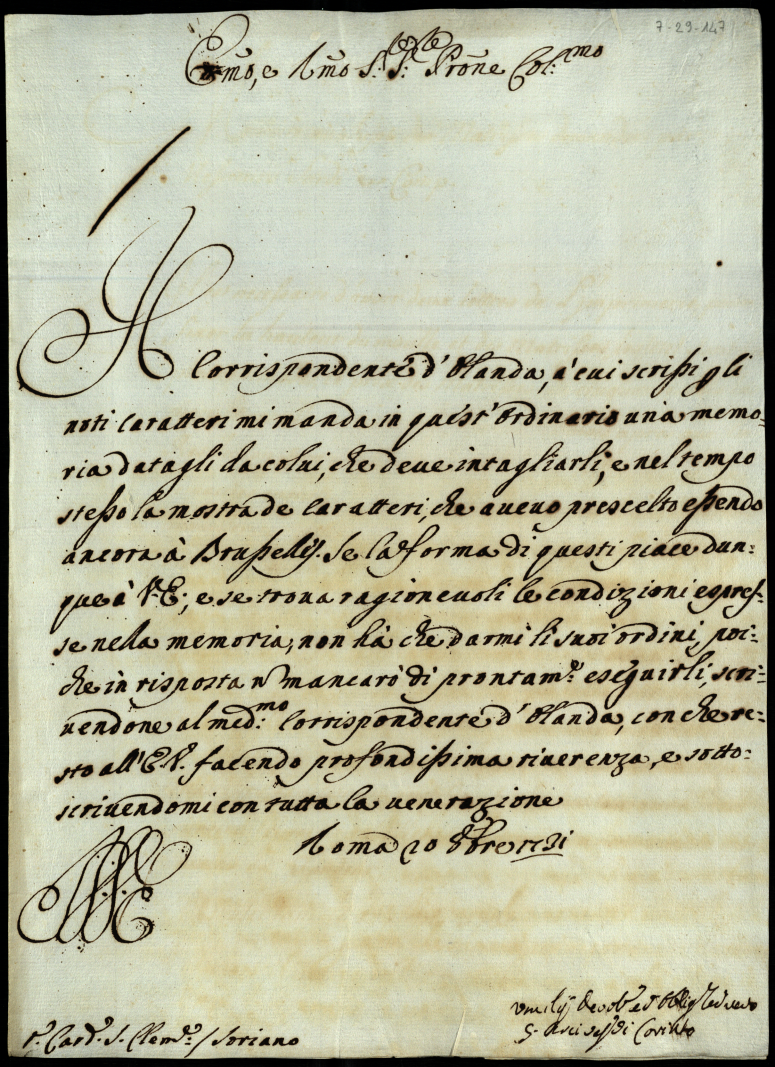 7-29-147
E͞mo, e R͞mo S.r S.r P͞rone Col:mo
Il Corrispondente d'Olanda, à cui scrissi gli
noti caratteri mi manda in quest'ordinario una memo-
ria datagli da colui, che deve intagliarli, e nel tempo
stesso la mostra de caratteri, che avevo prescelto essendo
ancora à Brusselles. Se la forma di questi piace dun-
que à V.E:, e se trova ragionevoli le condizioni espres-
se nella memoria, non hà che darmi li suoi ordini, poi-
che in risposta n mancarò di prontam.e eseguirli, scri-
vendone al med:mo Corrispondente d'Olanda, con che re-
sto all'E.V. facendo profondissima riverenza, e sotto-
scrivendomi con tutta la venerazione
Roma 20 Xbre 1731
S. Card. S. Clem.e / Soriano
Devot ed Obblig ed vero
G. Arcives di Corinto